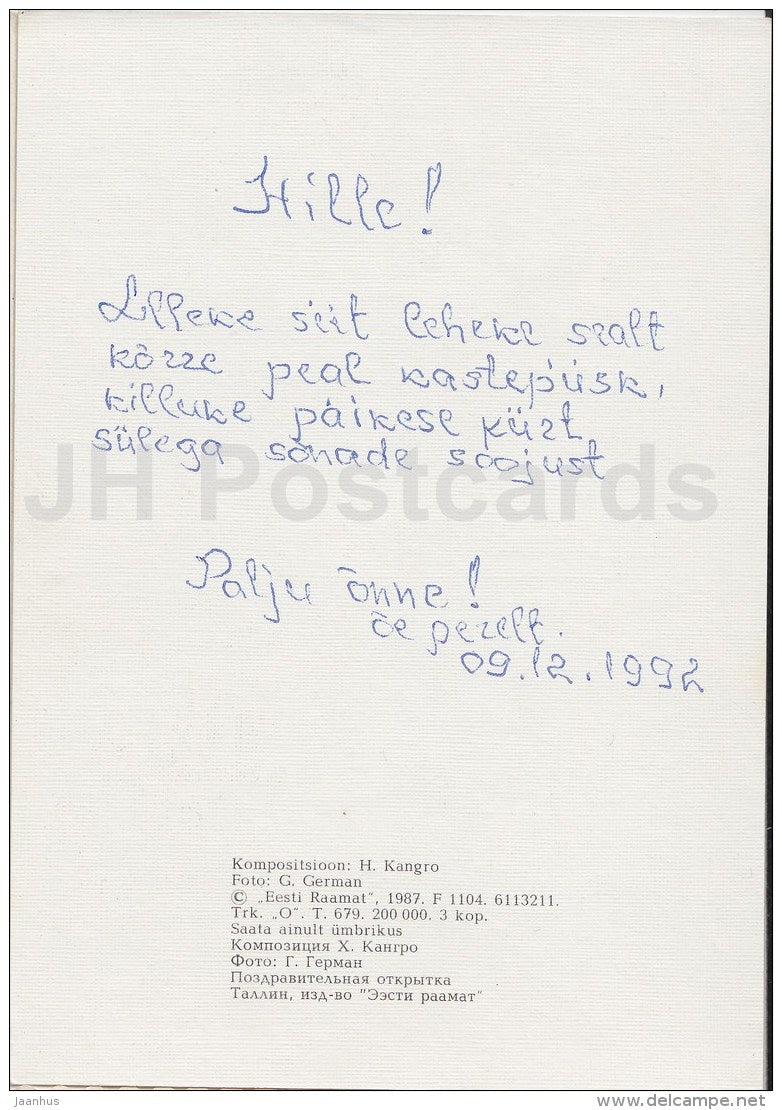 Hille!
Lilleke siit leheke sealt
kõrre peal kastepiisk,
killuke päikese kiirt
sülega sõnade soojust
Palju õnne!
õe perelt.
09.12.1992
JH Postcards
Kompositsioon: H. Kangro
Foto: G. German
© „Eesti Raamat“, 1987. F 1104. 6113211.
Trk. „O“. T. 679. 200 000. 3 kop.
Saata ainult ümbrikus
Композиция Х. Кангро
Фото: Г. Герман
Поздравительная открытка
Таллин, изд-во "Ээсти раамат"
jaanhus
www.delcampe.net